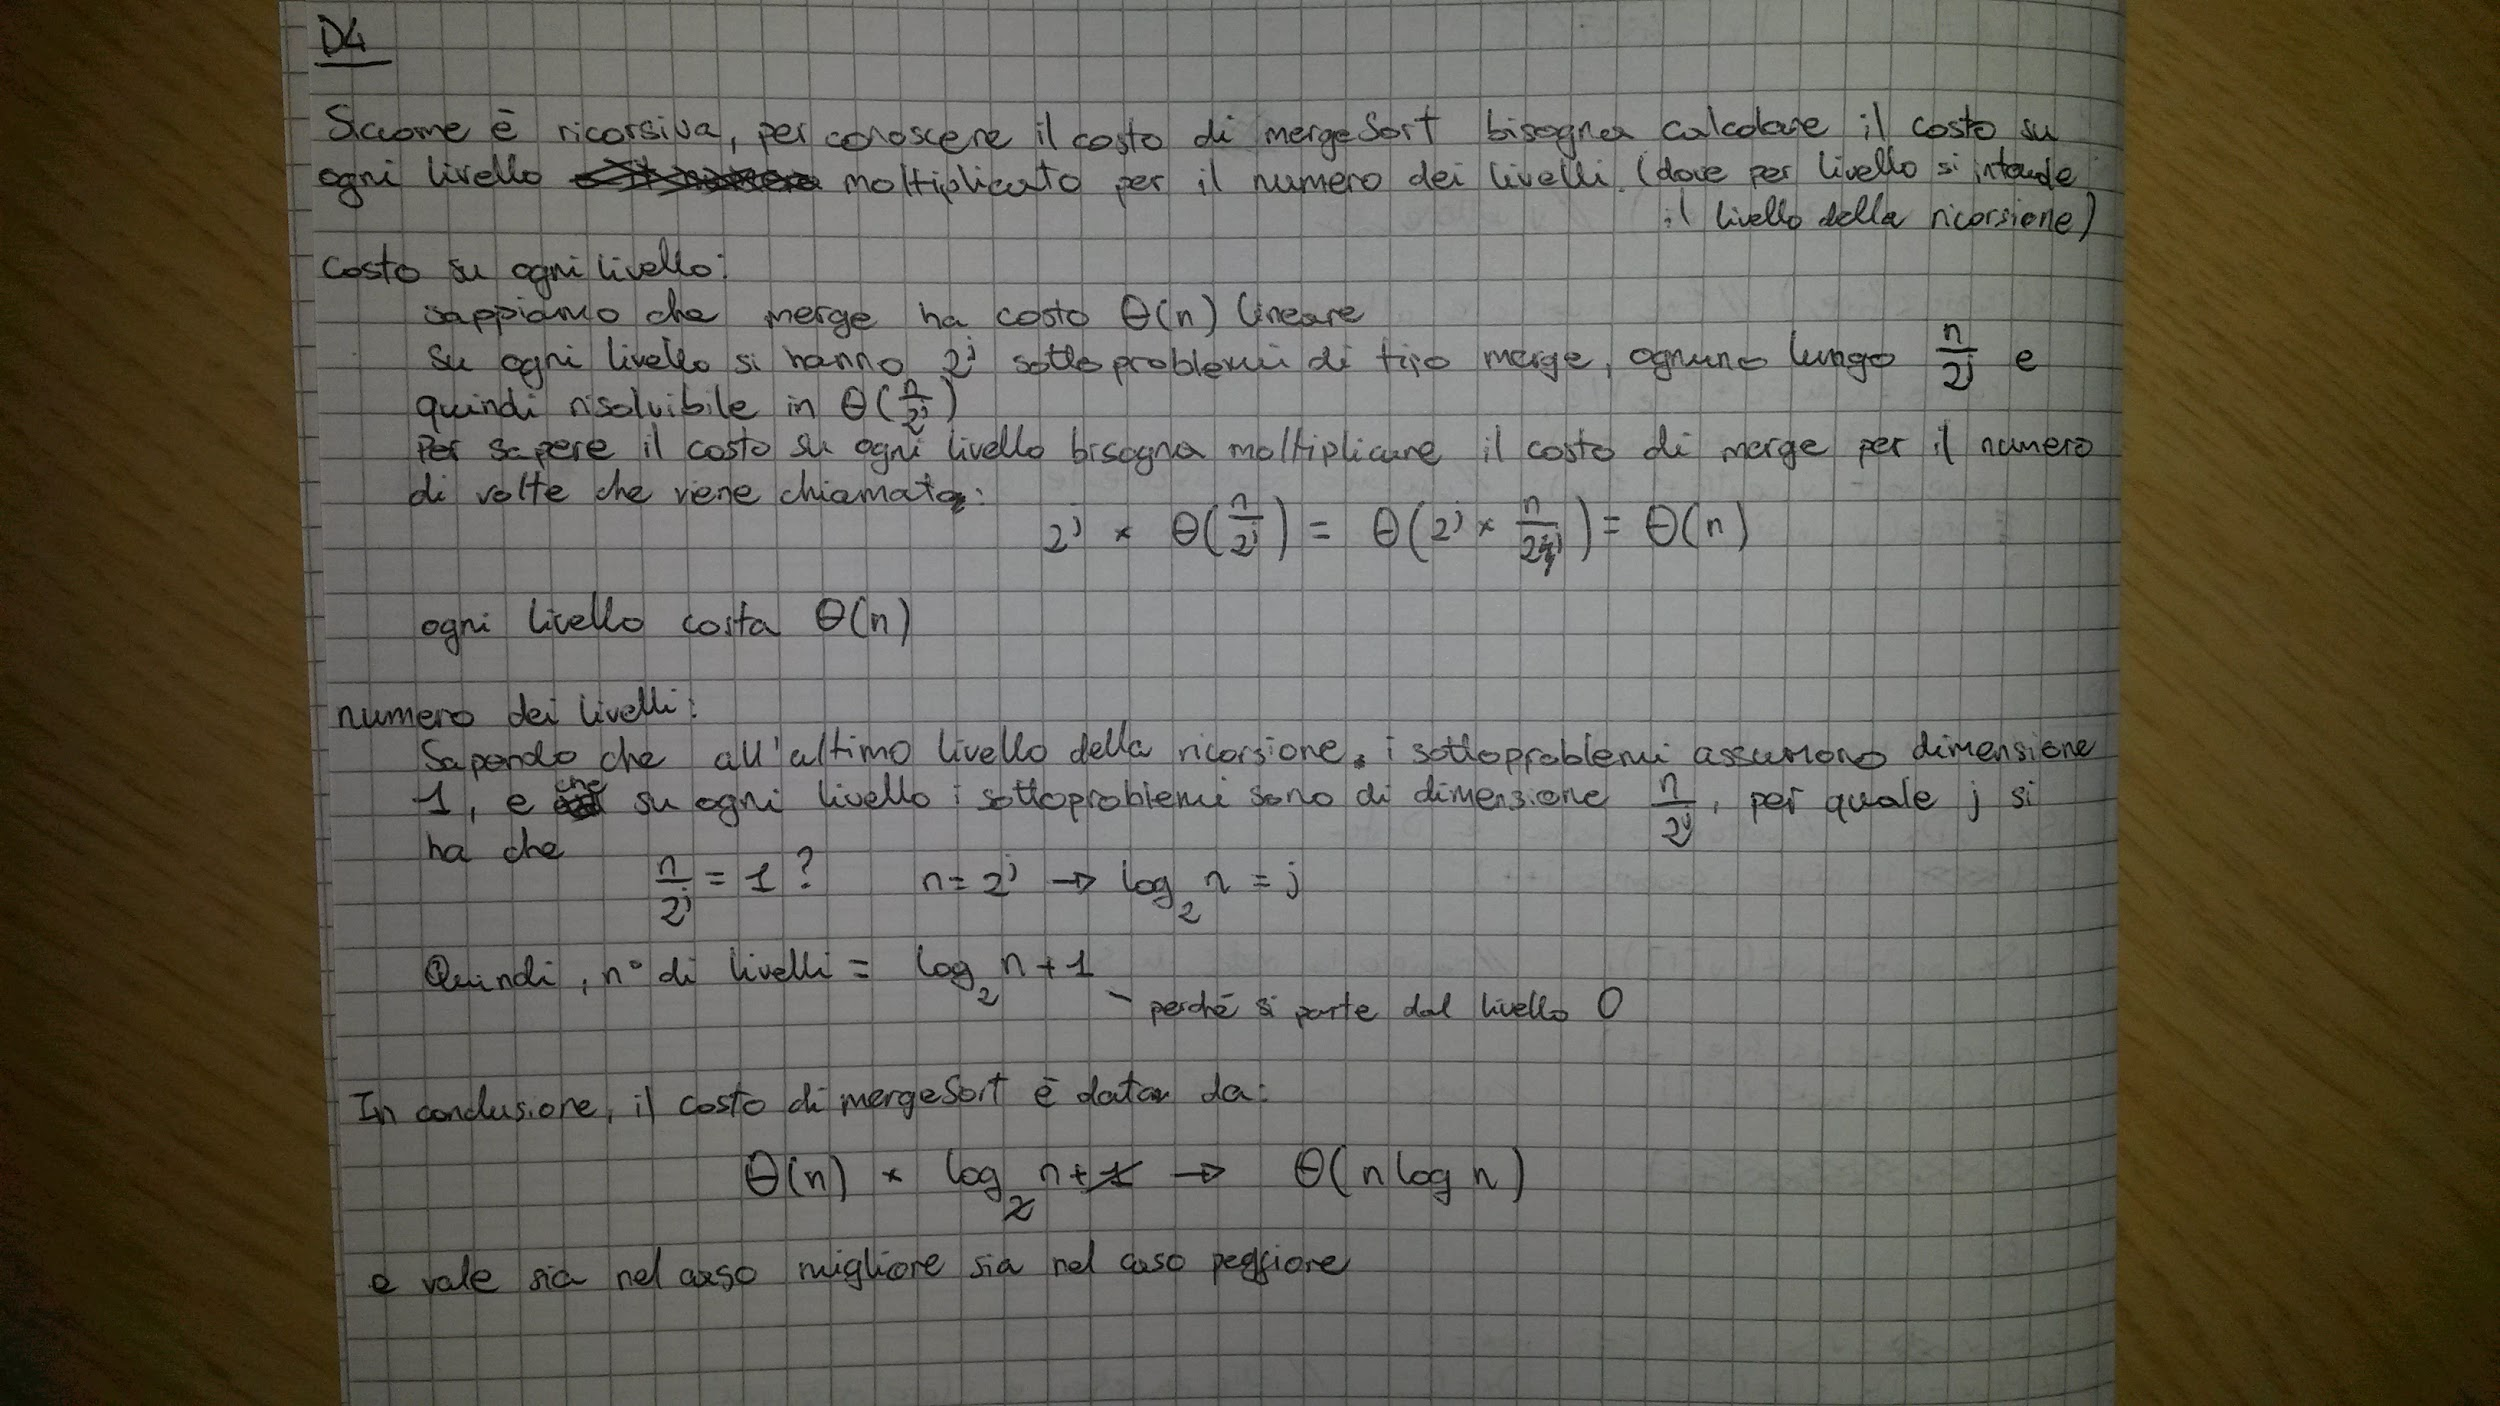 D4
Siccome è ricorsiva, per conoscere il costo di mergeSort bisogna calcolare il costo su
ogni livello moltiplicato per il numero dei livelli. (dove per livello si intende
il livello della ricorsione)
costo su ogni livello:
sappiamo che merge ha costo Θ(n) lineare
su ogni livello si hanno 2^j sottoproblemi di tipo merge, ognuno lungo n/2^j e
quindi risolvibile in Θ(n/2^j)
Per sapere il costo su ogni livello bisogna moltiplicare il costo di merge per il numero
di volte che viene chiamata:
2^j × Θ(n/2^j) = Θ(2^j × n/2^j) = Θ(n)
ogni livello costa Θ(n)
numero dei livelli:
Sapendo che all'ultimo livello della ricorsione, i sottoproblemi assumono dimensione
1, e che su ogni livello i sottoproblemi sono di dimensione n/2^j, per quale j si
ha che
n/2^j = 1? n = 2^j → log₂ n = j
Quindi, n° di livelli = log₂ n + 1
- perché si parte dal livello 0
In conclusione, il costo di mergeSort è dato da:
Θ(n) × log₂ n + 1 → Θ(n log n)
e vale sia nel caso migliore sia nel caso peggiore